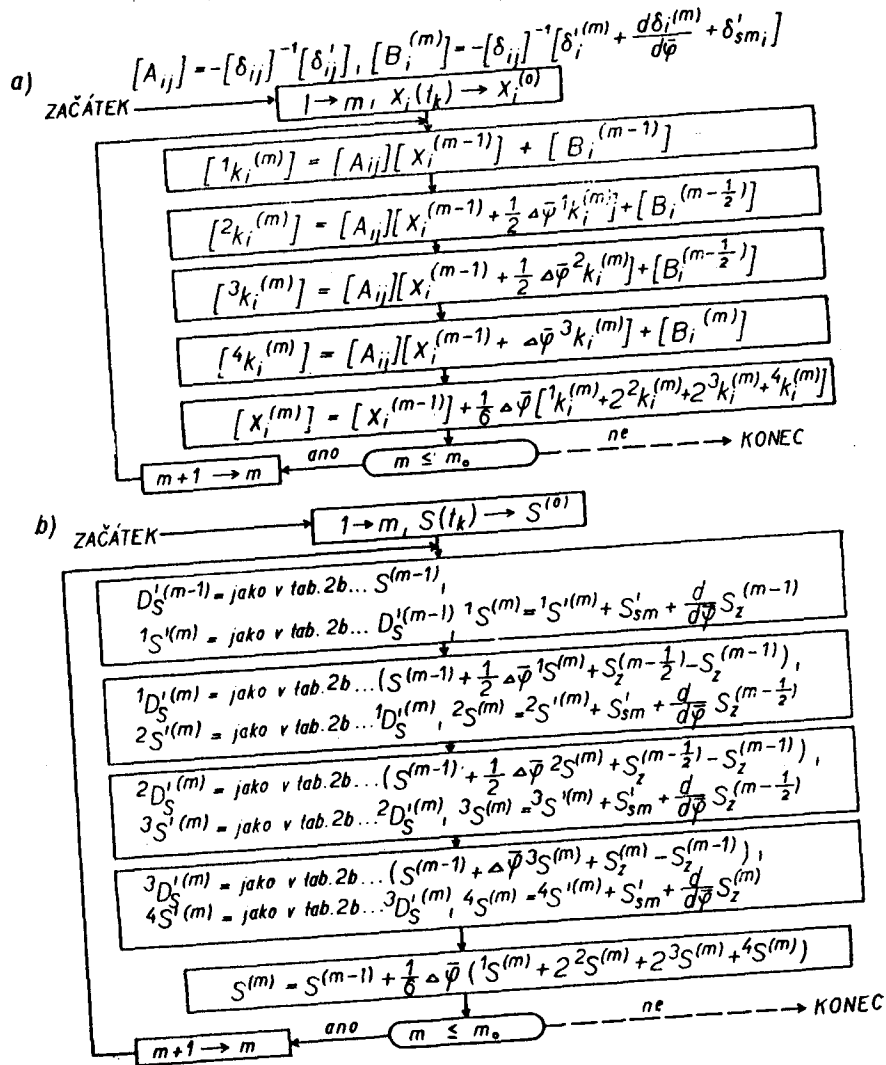 [A_{ij}] = -[δ_{ij}]^{-1}[δ'_{ij}], [B_i^{(m)}] = -[δ_{ij}]^{-1}[δ_i'^{(m)} + dδ_i^{(m)}/dφ̄ + δ'_{sm_i}]
a)
ZAČÁTEK
1 → m, X_i(t_k) → X_i^{(0)}
[¹k_i^{(m)}] = [A_{ij}][X_i^{(m-1)}] + [B_i^{(m-1)}]
[²k_i^{(m)}] = [A_{ij}][X_i^{(m-1)} + 1/2 Δφ̄ ¹k_i^{(m)}] + [B_i^{(m-1/2)}]
[³k_i^{(m)}] = [A_{ij}][X_i^{(m-1)} + 1/2 Δφ̄ ²k_i^{(m)}] + [B_i^{(m-1/2)}]
[⁴k_i^{(m)}] = [A_{ij}][X_i^{(m-1)} + Δφ̄ ³k_i^{(m)}] + [B_i^{(m)}]
[X_i^{(m)}] = [X_i^{(m-1)}] + 1/6 Δφ̄ [¹k_i^{(m)} + 2 ²k_i^{(m)} + 2 ³k_i^{(m)} + ⁴k_i^{(m)}]
m+1 → m ano m ≤ m₀ ne KONEC
b)
ZAČÁTEK
1 → m, S(t_k) → S^{(0)}
D_S'^{(m-1)} = jako v tab. 2b... S^{(m-1)},
¹S'^{(m)} = jako v tab. 2b... D_S'^{(m-1)}, ¹S^{(m)} = ¹S'^{(m)} + S'_{sm} + d/dφ̄ S_z^{(m-1)}
¹D_S'^{(m)} = jako v tab. 2b... (S^{(m-1)} + 1/2 Δφ̄ ¹S^{(m)} + S_z^{(m-1/2)} - S_z^{(m-1)}),
²S'^{(m)} = jako v tab. 2b... ¹D_S'^{(m)}, ²S^{(m)} = ²S'^{(m)} + S'_{sm} + d/dφ̄ S_z^{(m-1/2)}
²D_S'^{(m)} = jako v tab. 2b... (S^{(m-1)} + 1/2 Δφ̄ ²S^{(m)} + S_z^{(m-1/2)} - S_z^{(m-1)}),
³S'^{(m)} = jako v tab. 2b... ²D_S'^{(m)}, ³S^{(m)} = ³S'^{(m)} + S'_{sm} + d/dφ̄ S_z^{(m-1/2)}
³D_S'^{(m)} = jako v tab. 2b... (S^{(m-1)} + Δφ̄ ³S^{(m)} + S_z^{(m)} - S_z^{(m-1)}),
⁴S'^{(m)} = jako v tab. 2b... ³D_S'^{(m)}, ⁴S^{(m)} = ⁴S'^{(m)} + S'_{sm} + d/dφ̄ S_z^{(m)}
S^{(m)} = S^{(m-1)} + 1/6 Δφ̄ (¹S^{(m)} + 2 ²S^{(m)} + 2 ³S^{(m)} + ⁴S^{(m)})
m+1 → m ano m ≤ m₀ ne KONEC